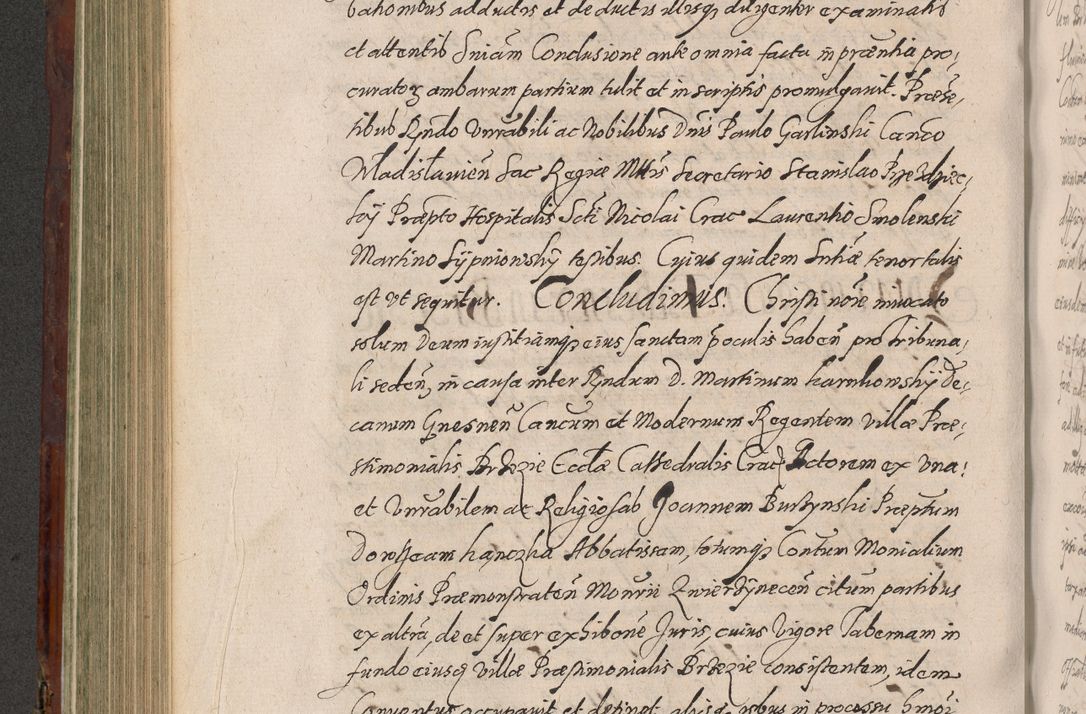 bationibus adductis et deductis illisq₃ diligenter examinatis
et attentis Sniãm Conclusione ante omnia facta in præntia pro,
curatoꝝ ambarum partium tulit et in scriptis promulgavit. Præse,
tibus Rndo Vnrabili ac Nobilibus Dnis Paulo Garlinski Canco
Wladislavien̄ Sac Regiæ Mttis Secretario Stanislao Przedziec,
kij Præpto Hospitalis Scti Nicolai Crac Laurentio Smolenski
Martino Sÿpniowskÿ testibus. Cujus quidem Sntiæ tenor talis
est vt sequitur. Concludimus! Christi noie invocato
solum Deum iustitiamq₃ eius sanctam p̄ oculis haben̄ pro Tribuna,
li seden̄, in causa inter Rndum D. Martinum karnkowskÿ de,
canum Gnesnen̄ Cancum et Modernum Regentem Villæ Præ,
stimonialis Brzezie Eccłæ Cathedralis Crac Actorem ex vna!
et Vnrabilem ac Religiosab Joannem Burzynski Præptum
Dorotheam kączka Abbatissam, totumq₃ Contum Monialium
Ordinis Præmonstraten̄ Monrii Zwierzÿnecen̄ citum partibus
ex altrã, de et super exhibone Juris, cuius vigore Tabernam in
fundo eiusq₃ villæ Præstimonialis Brzezie consistentem, idem
Conventus occupavit et detinet, alijsq₃ rebus in processu hmoi